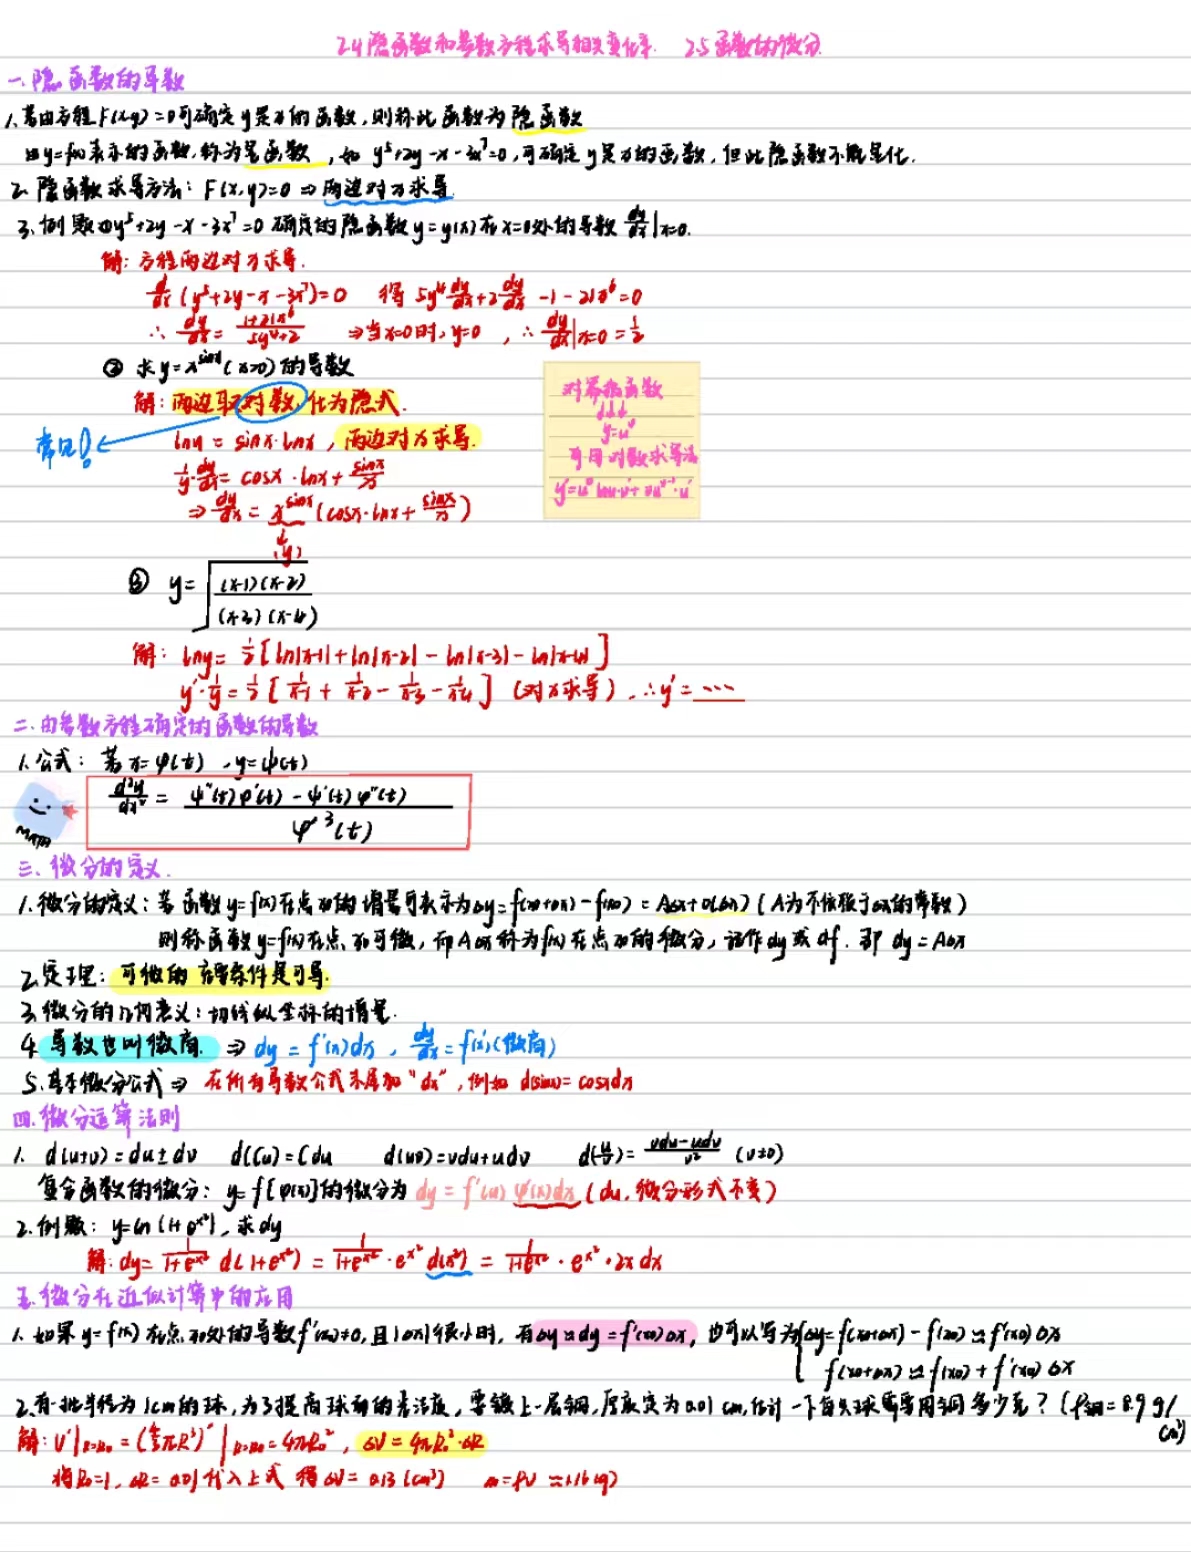 2.4 隐函数和参数方程求导相关变化率. 2.5 函数的微分
一.隐函数的导数
1.若由方程F(x,y)=0可确定y是x的函数,则称此函数为隐函数
由y=f(x)表示的函数,称为显函数,如 y⁵+2y-x-3x⁷=0,可确定y是x的函数,但此隐函数不能显化.
2.隐函数求导方法: F(x,y)=0 ⇒ 两边对x求导.
3.例题①y⁵+2y-x-3x⁷=0 确定的隐函数y=y(x)在x=0处的导数 dy/dx|x=0.
解: 方程两边对x求导.
d/dx (y⁵+2y-x-3x⁷)=0 得 5y⁴dy/dx+2dy/dx -1-21x⁶=0
∴ dy/dx = (1+21x⁶)/(5y⁴+2) ⇒当x=0时,y=0 , ∴ dy/dx|x=0 = 1/2
② 求y=x^sinx (x>0)的导数
解: 两边取对数,化为隐式.
常见!
lny = sinx·lnx , 两边对x求导.
1/y·dy/dx = cosx·lnx + sinx/x
⇒ dy/dx = x^sinx (cosx·lnx + sinx/x)
(y)
对幂指函数
y=u^v
可用对数求导法
y'=u^v lnu·v'+vu^(v-1)·u'
③ y=√((x-1)(x-2)/(x-3)(x-4))
解: lny= 1/2[ln|x-1|+ln|x-2|-ln|x-3|-ln|x-4|]
y'·1/y = 1/2[1/(x-1) + 1/(x-2) - 1/(x-3) - 1/(x-4)] (对x求导), ∴y'= ……
二.由参数方程确定的函数的导数
1.公式: 若x=φ(t) , y=ψ(t)
d²y/dx² = (ψ''(t)φ'(t) - ψ'(t)φ''(t))/φ'³(t)
MATH
三、微分的定义.
1.微分的定义:若函数y=f(x)在点x0的增量可表示为Δy=f(x0+Δx)-f(x0)=AΔx+o(Δx) (A为不依赖于Δx的常数)
则称函数y=f(x)在点x0可微,而AΔx称为f(x)在点x0的微分,记作dy或df. 即 dy=AΔx
2.定理: 可微的充要条件是可导.
3.微分的几何意义:切线纵坐标的增量.
4.导数也叫微商. ⇒ dy=f'(x)dx , dy/dx=f'(x)(微商)
5.基本微分公式⇒ 在所有导数公式末尾加“dx”,例如 d(sinx)=cosxdx
四.微分运算法则
1. d(u±v)=du±dv d(Cu)=Cdu d(uv)=vdu+udv d(u/v)=(vdu-udv)/v² (v≠0)
复合函数的微分: y=f[φ(x)]的微分为 dy=f'(u)φ'(x)dx (du,微分形式不变)
2.例题: y=ln(1+e^x²), 求dy
解: dy= 1/(1+e^x²) d(1+e^x²) = 1/(1+e^x²)·e^x² d(x²) = 1/(1+e^x²)·e^x²·2x dx
五.微分在近似计算中的应用
1.如果y=f(x)在点x0处的导数f'(x0)≠0,且|Δx|很小时,有Δy≈dy=f'(x0)Δx, 也可以写为{Δy=f(x0+Δx)-f(x0)≈f'(x0)Δx
f(x0+Δx)≈f(x0)+f'(x0)Δx
2.有一批半径为1cm的球,为了提高球面的光洁度,要镀上一层铜,厚度定为0.01cm,估计一下每只球需要用铜多少克?(ρ铜=8.9g/cm³)
解: V'|R=R0 = (4/3πR³)'|R=R0 = 4πR0², ΔV=4πR0²·ΔR
将R0=1, ΔR=0.01代入上式 得ΔV=0.13(cm³) m=ρV≈1.16(g)